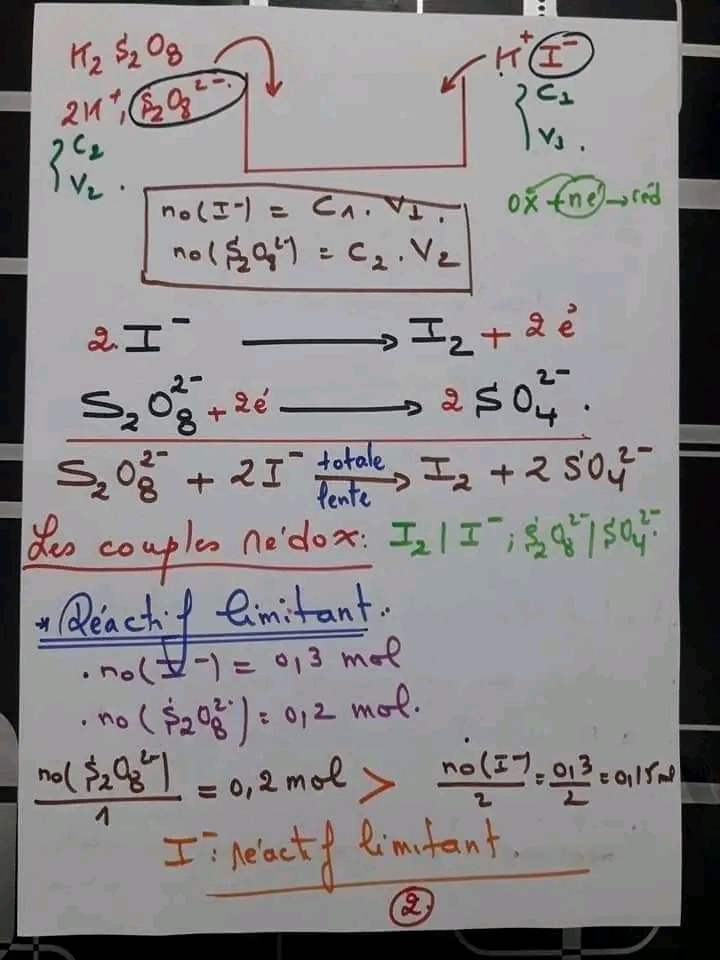 K₂S₂O₈
K⁺ I⁻
2K⁺, S₂O₈²⁻
{ C₂
V₂.
{ C₁
V₁.
n₀(I⁻) = C₁.V₁.
n₀(S₂O₈²⁻) = C₂.V₂
ox + né → réd
2I⁻ → I₂ + 2é
S₂O₈²⁻ + 2é → 2SO₄²⁻.
S₂O₈²⁻ + 2I⁻ totale lente → I₂ + 2SO₄²⁻
Les couples rédox: I₂|I⁻; S₂O₈²⁻|SO₄²⁻
* Réactif limitant.
. n₀(I⁻) = 0,3 mol
. n₀(S₂O₈²⁻) = 0,2 mol.
n₀(S₂O₈²⁻)/1 = 0,2 mol > n₀(I⁻)/2 = 0,3/2 = 0,15 mol
I⁻: réactif limitant.
2.